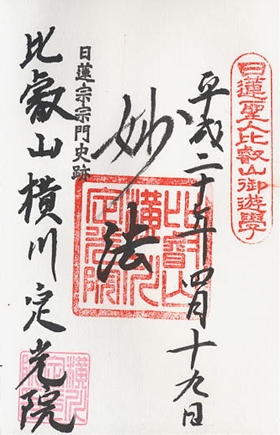 日蓮聖比叡山御遊學
平成二十年四月十九日
妙法
比叡山横川定光院
日蓮宗宗門史跡
比叡山横川定光院
横川定光院